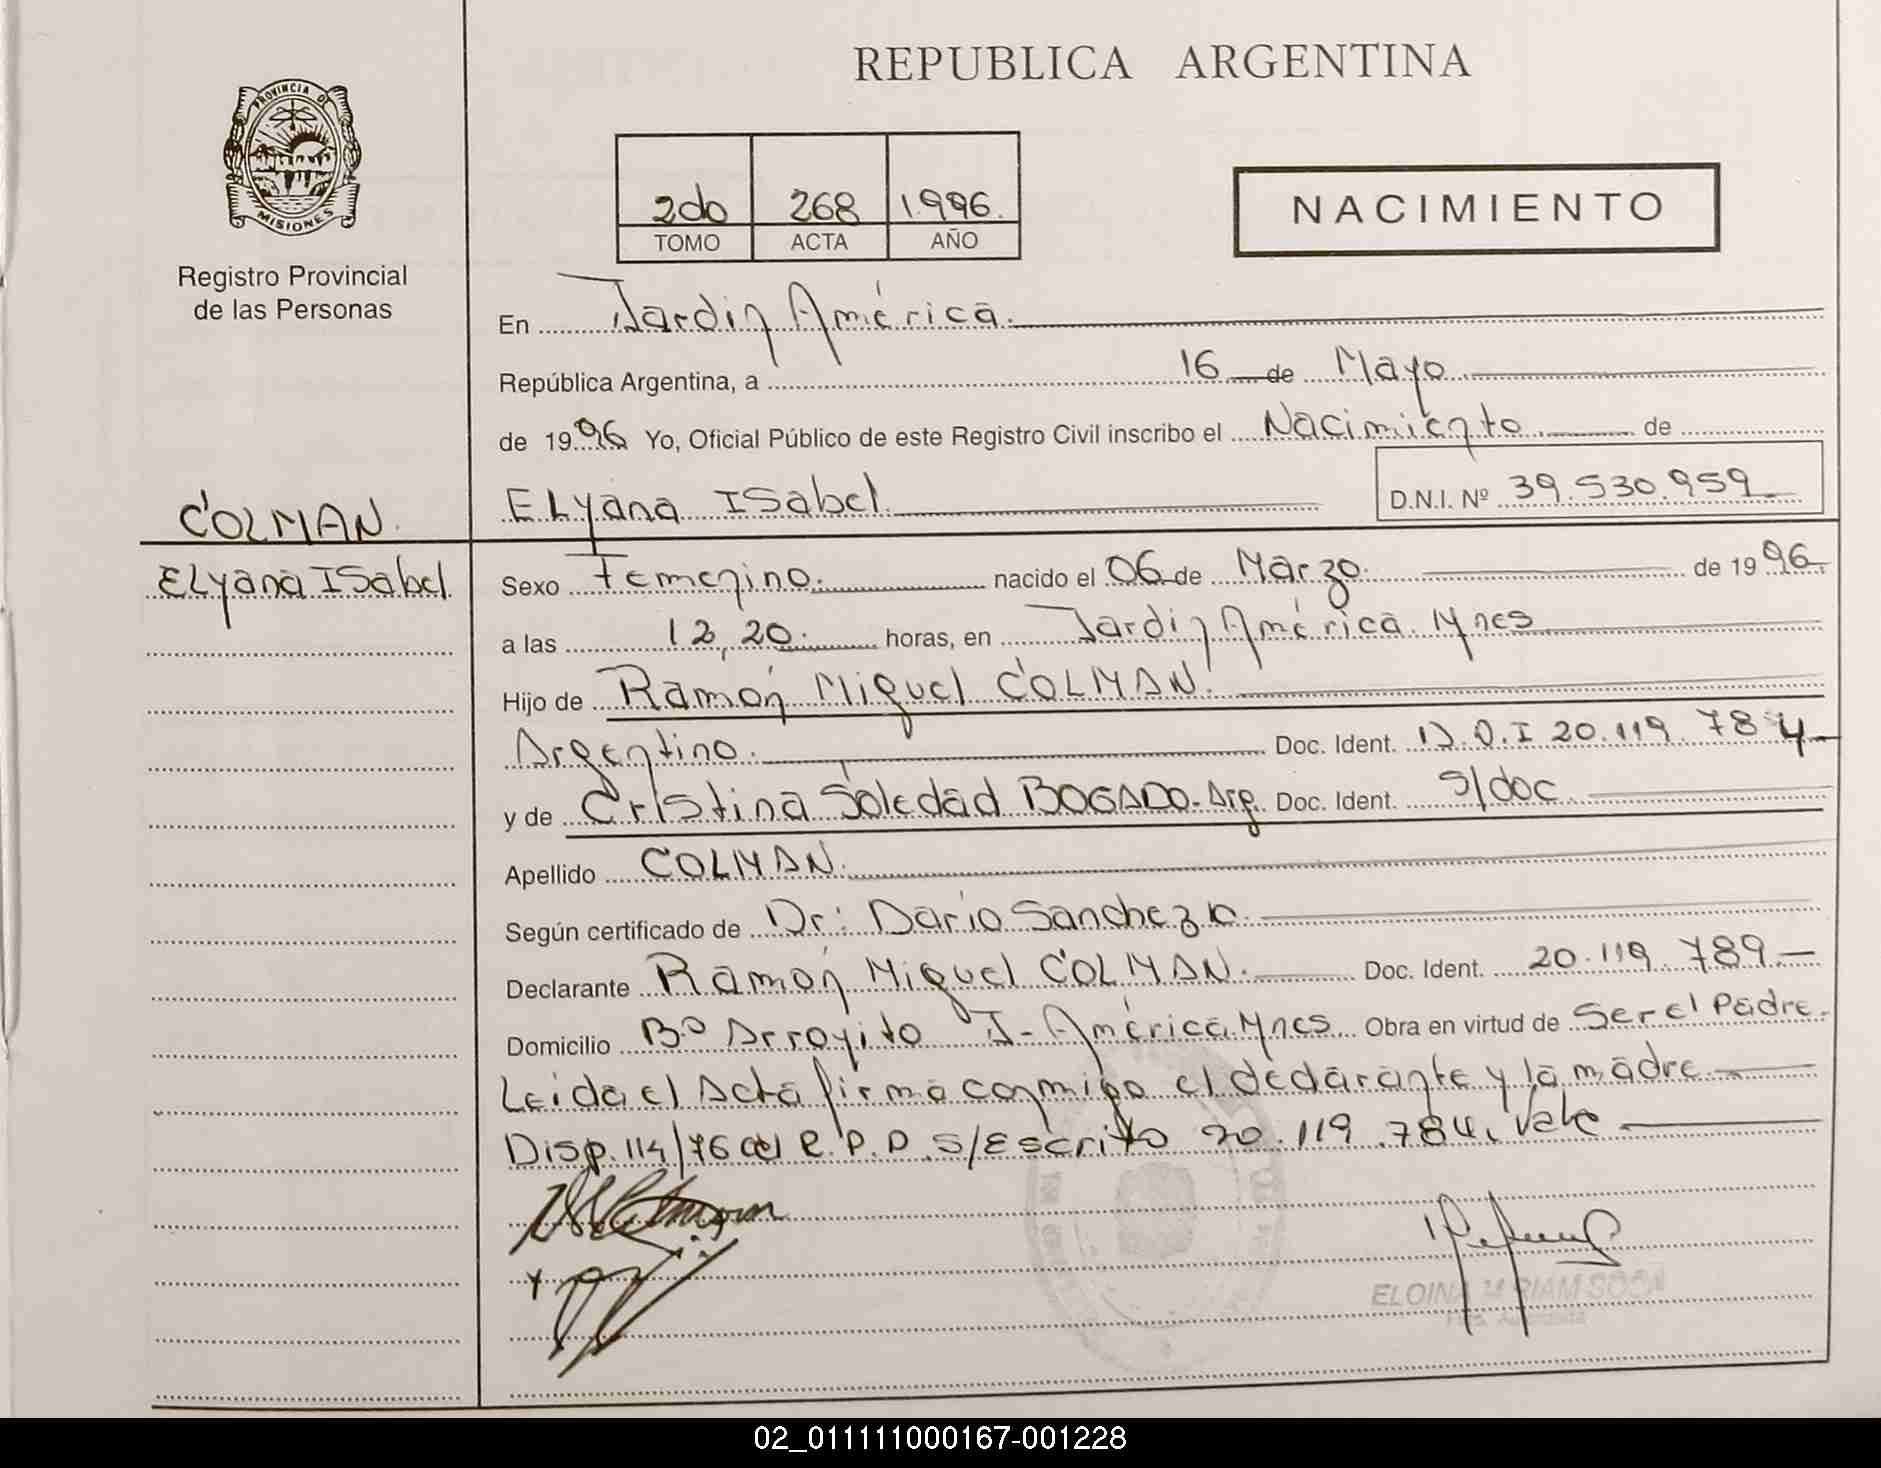 REPUBLICA ARGENTINA
PROVINCIA DE
MISIONES
Registro Provincial
de las Personas
2do 268 1.996.
TOMO ACTA AÑO
NACIMIENTO
En Jardin América.
República Argentina, a 16 de Mayo
de 19 96 Yo, Oficial Público de este Registro Civil inscribo el Nacimiento de
ELyana ISabel D.N.I. Nº 39.530.959
COLMAN.
ELyana ISabel.
Sexo Femenino. nacido el 06 de Marzo. de 19 96.
a las 12,20. horas, en Jardin América. Mnes
Hijo de Ramón Miguel COLMAN.
Argentino. Doc. Ident. D.N.I 20.119.784
y de Cristina Soledad BOGADO-Arg. Doc. Ident. S/doc
Apellido COLMAN.
Según certificado de Dr: Dario Sanchez
Declarante Ramón Miguel COLMAN. Doc. Ident. 20.119.789.-
Domicilio Bº Arroyito J-América. Mnes Obra en virtud de Ser el Padre.
Leida el Acta firma conmigo el declarante y la madre
Disp. 114/76 del R.P.P. S/Escrito 20.119.784. Vale
ELOINA MIRIAM SOSA
02_011111000167-001228